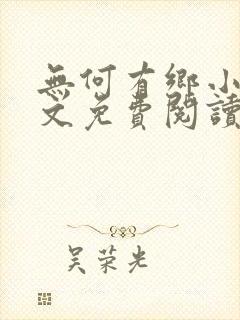 無何有鄉小
文免費閱讀
吴荣光